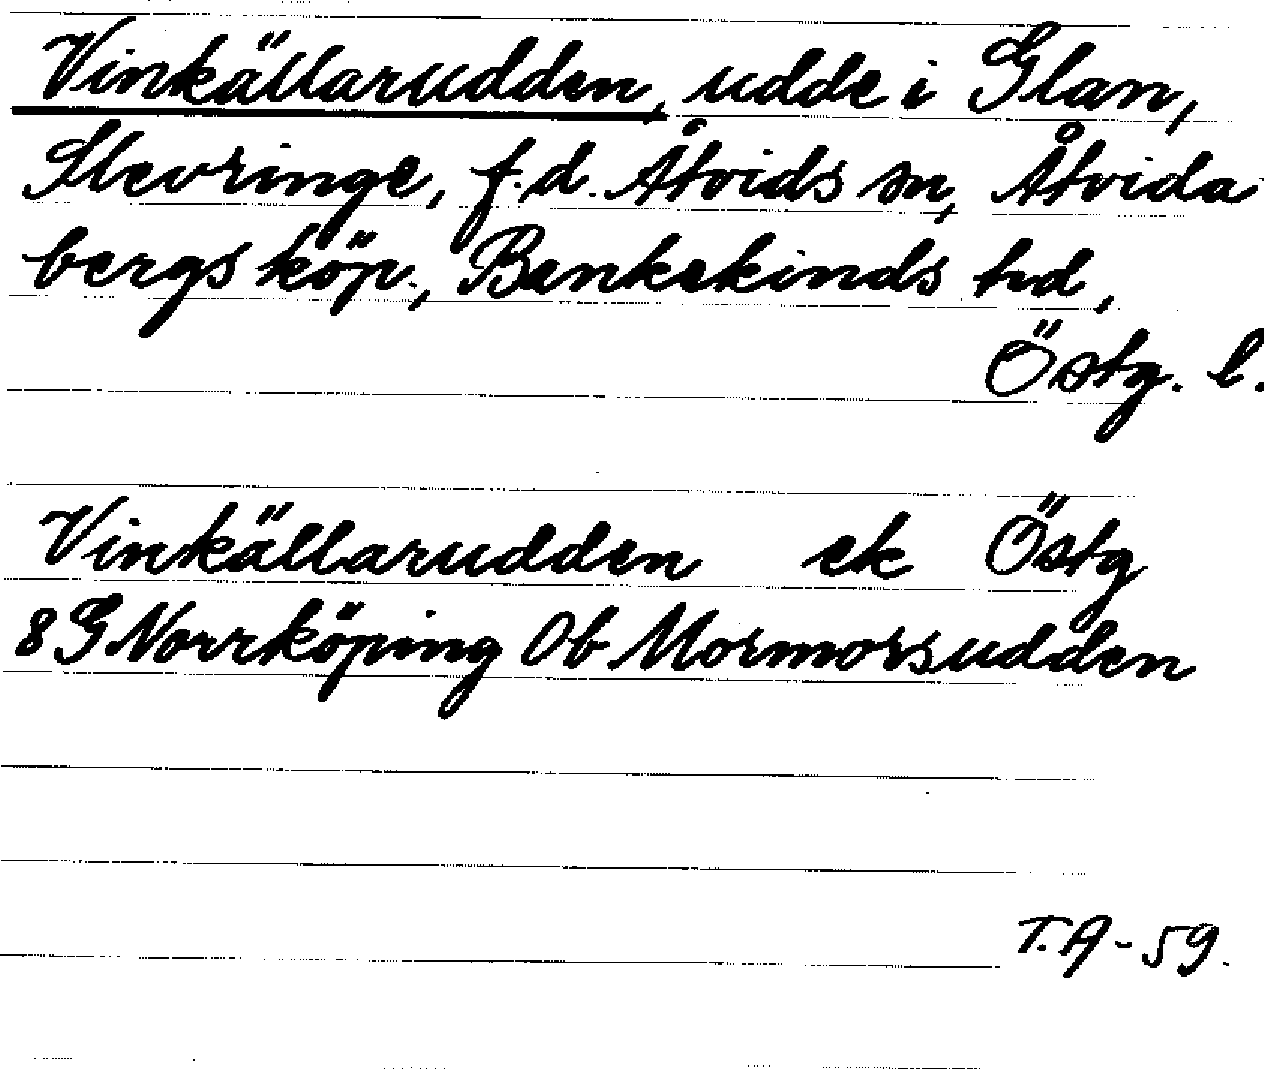 Vinkällarudden, udde i Glan,
Slevringe, f.d. Åtvids sn, Åtvida
bergs köp., Bankekinds hd,
Östg. l.
Vinkällarudden ek Östg
8 G Norrköping Ob Mormorsudden
T.A-59.